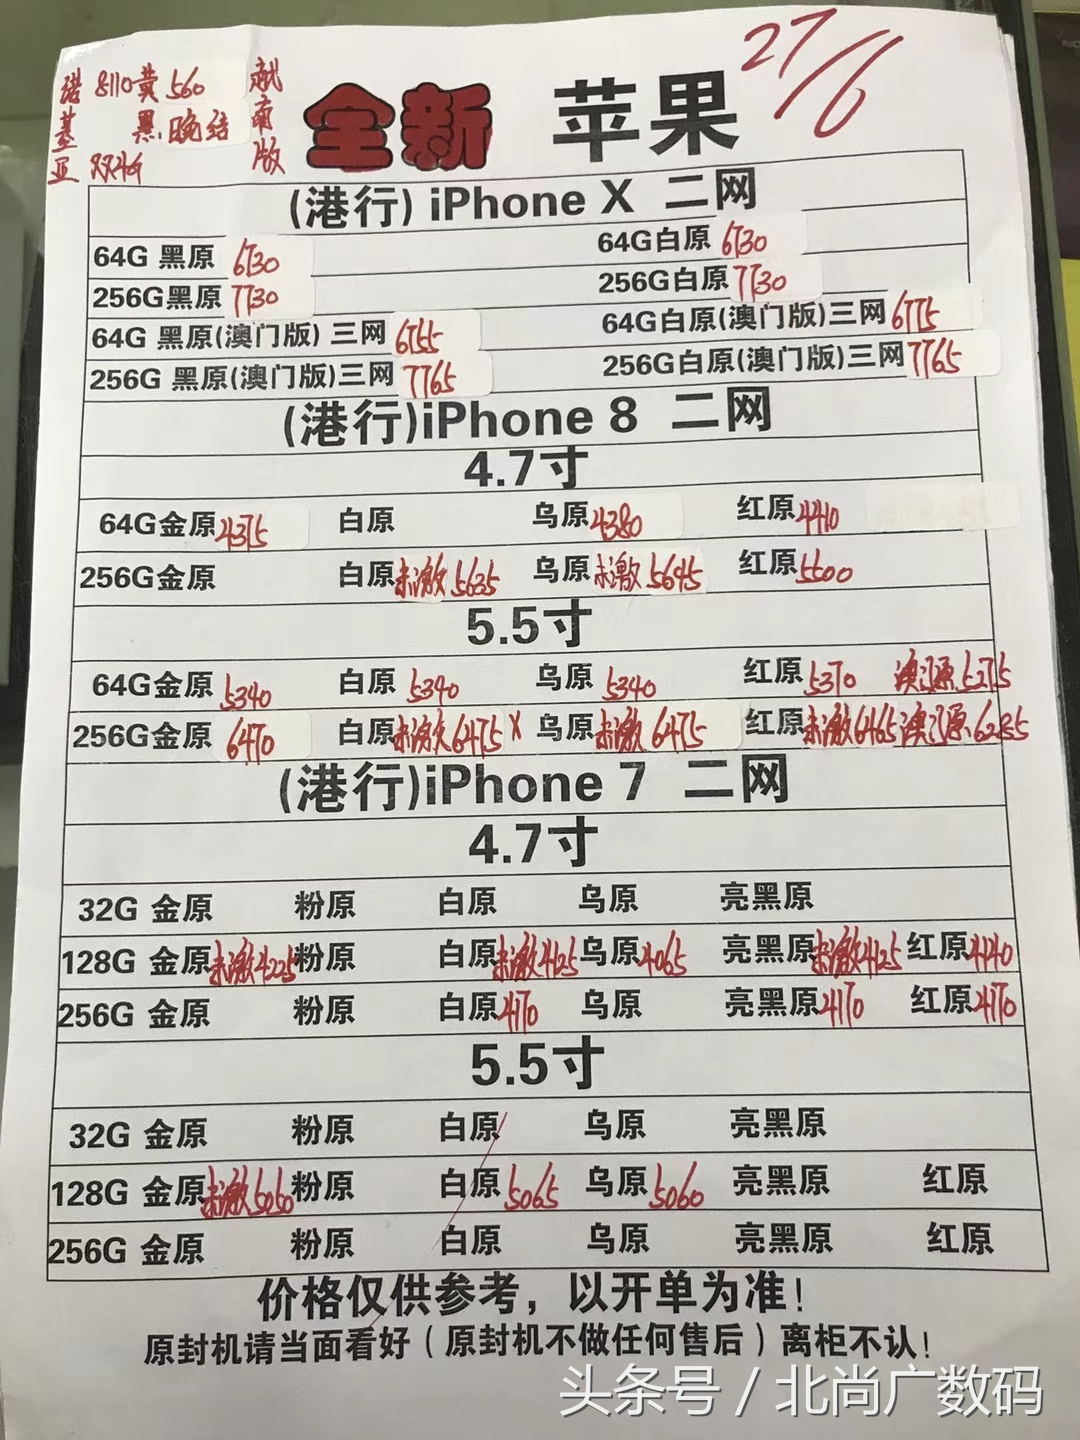 27/6
诺基亚 8110黄560 越南版
黑 晚结
双卡
全新 苹果
(港行) iPhone X 二网
64G 黑原 6730 64G白原 6730
256G黑原 7730 256G白原 7730
64G 黑原(澳门版) 三网 6755 64G白原(澳门版)三网 6775
256G 黑原(澳门版)三网 7765 256G白原(澳门版)三网 7765
(港行)iPhone 8 二网
4.7寸
64G金原 4375 白原 乌原 4380 红原 4410
256G金原 白原 未激 5635 乌原 未激 5645 红原 5500
5.5寸
64G金原 5340 白原 5340 乌原 5340 红原 5370 澳门原 5275
256G金原 6470 白原 未激 6475 X 乌原 未激 6475 红原 未激 6465 澳门原 6285
(港行)iPhone 7 二网
4.7寸
32G 金原 粉原 白原 乌原 亮黑原
128G 金原 未激 4225 粉原 白原 未激 4125 乌原 4065 亮黑原 未激 4125 红原 4240
256G 金原 粉原 白原 4170 乌原 亮黑原 4170 红原 4170
5.5寸
32G 金原 粉原 白原 乌原 亮黑原
128G 金原 未激 5050 粉原 白原 5065 乌原 5060 亮黑原 红原
256G 金原 粉原 白原 乌原 亮黑原 红原
价格仅供参考，以开单为准！
原封机请当面看好（原封机不做任何售后）离柜不认！
头条号 / 北尚广数码